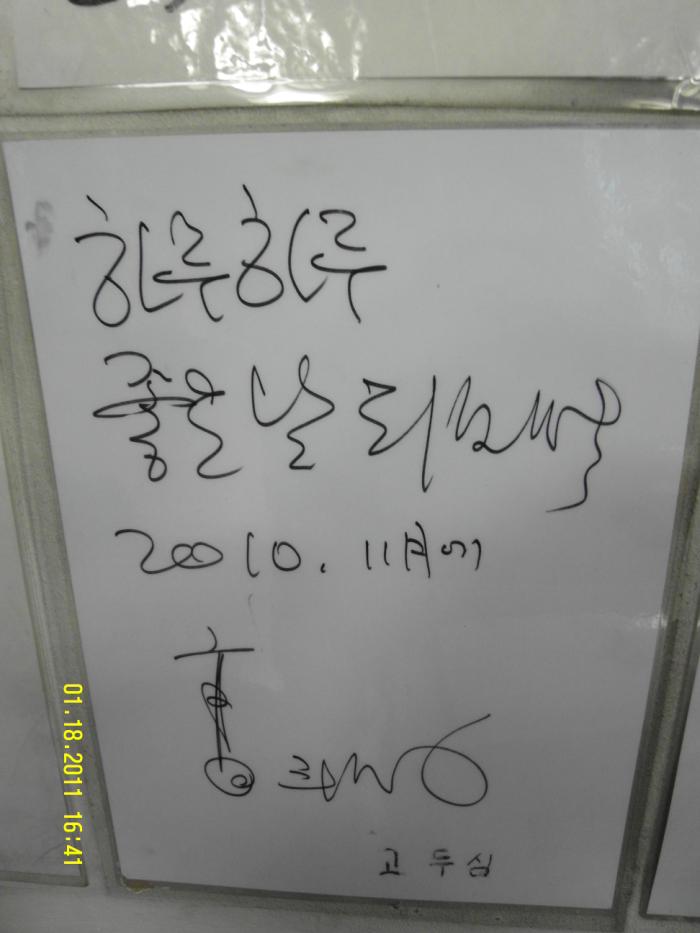 하루하루
좋은 날 되세요
2010. 11月에
고 두 심
01.18.2011 16:41